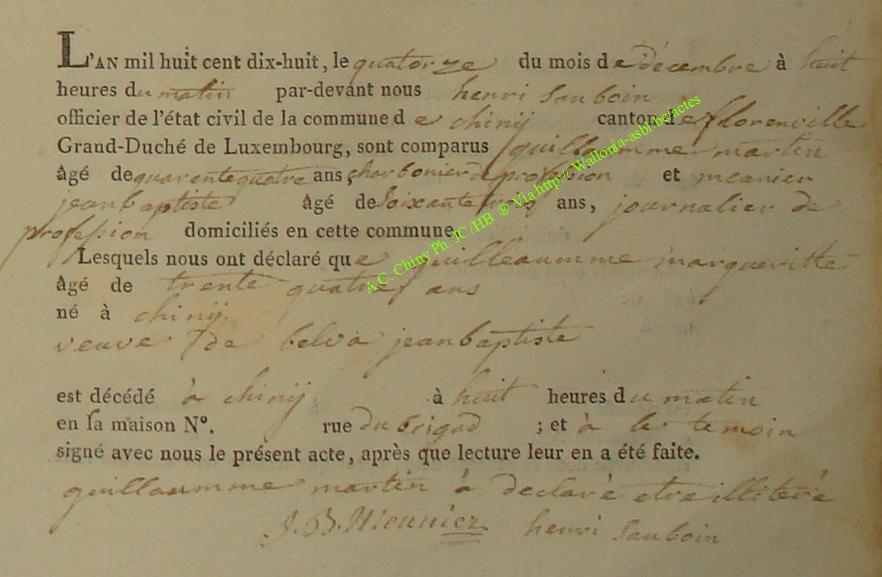 L'AN mil huit cent dix-huit, le quatorze du mois de décembre à huit
heures du matin par-devant nous henri Sauboin
officier de l'état civil de la commune de chinij canton de florenville
Grand-Duché de Luxembourg, sont comparus guillaumme martin
âgé de quarente quatre ans, charbonier de profession et meanier
jeanbaptiste âgé de soixante ans, journalier de
profession domiciliés en cette commune,
Lesquels nous ont déclaré que guilleaumme margueritte
âgé de trente quatre ans
né à chinij
veuve de belva jeanbaptiste
est décédé à chinij à huit heures du matin
en la maison N°. rue du brigad ; et à le temoin
signé avec nous le présent acte, après que lecture leur en a été faite.
guillaumme martin à déclaré etre illiterè
J.B. Meunier henri Sauboin
A.C. Chiny Ph. JC/HB ® Via http://Wallonia-asbl.be/actes